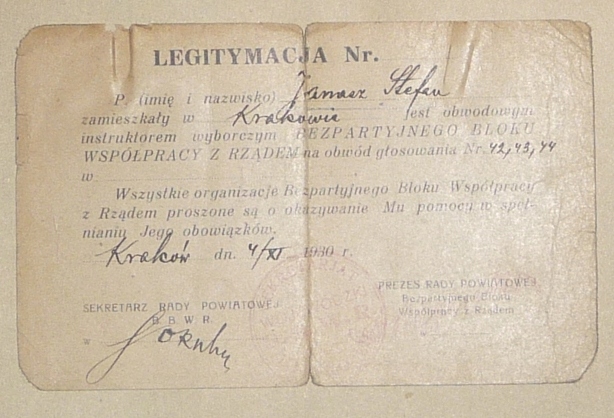 LEGITYMACJA Nr.
P. (imię i nazwisko) Janasz Stefan
zamieszkały w Krakowie jest obwodowym
instruktorem wyborczym BEZPARTYJNEGO BLOKU
WSPÓŁPRACY Z RZĄDEM na obwód głosowania Nr. 42, 43, 44
w
Wszystkie organizacje Bezpartyjnego Bloku Współpracy
z Rządem proszone są o okazywanie Mu pomocy w speł-
nianiu Jego obowiązków.
Kraków dn. 4/XI 1930 r.
PREZES RADY POWIATOWEJ
Bezpartyjnego Bloku
Współpracy z Rządem
SEKRETARZ RADY POWIATOWEJ
B. B. W. R.